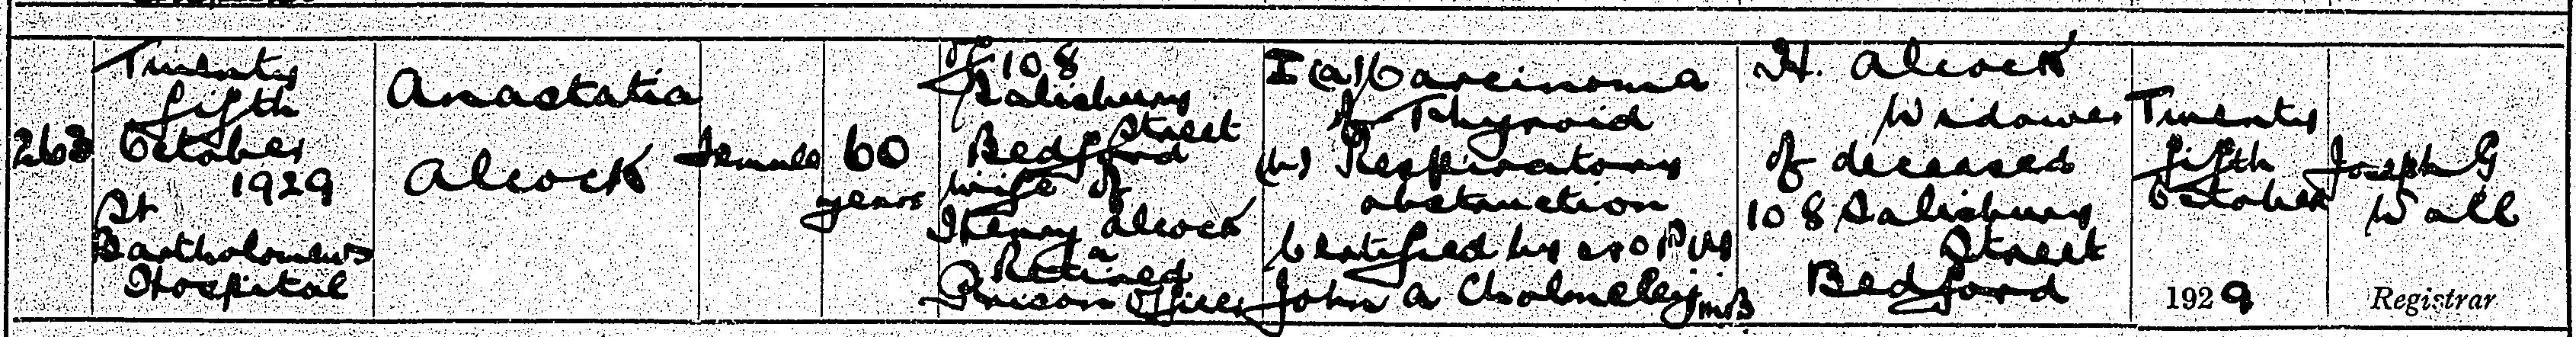 263
Twenty
fifth
October
1929
St
Bartholomew's
Hospital
Anastatia
Alcock
Female
60
years
of 108
Salisbury
Street
Bedford
wife of
Henry Alcock
a
Retired
Prison Officer
I (a) Carcinoma
of Thyroid
(b) Respiratory
obstruction
Certified by
John A Cholmeley MB
H. Alcock
Widower
of deceased
108 Salisbury
Street
Bedford
Twenty
fifth
October
1929
Joseph G
Wall
Registrar